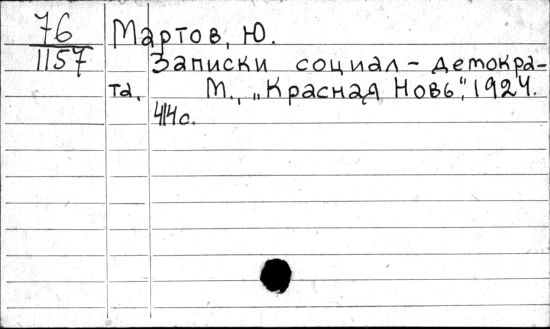 76
1157
Мартов, Ю.
Записки социал-демокра-
та. М., „Красная Новь", 1924.
414 с.